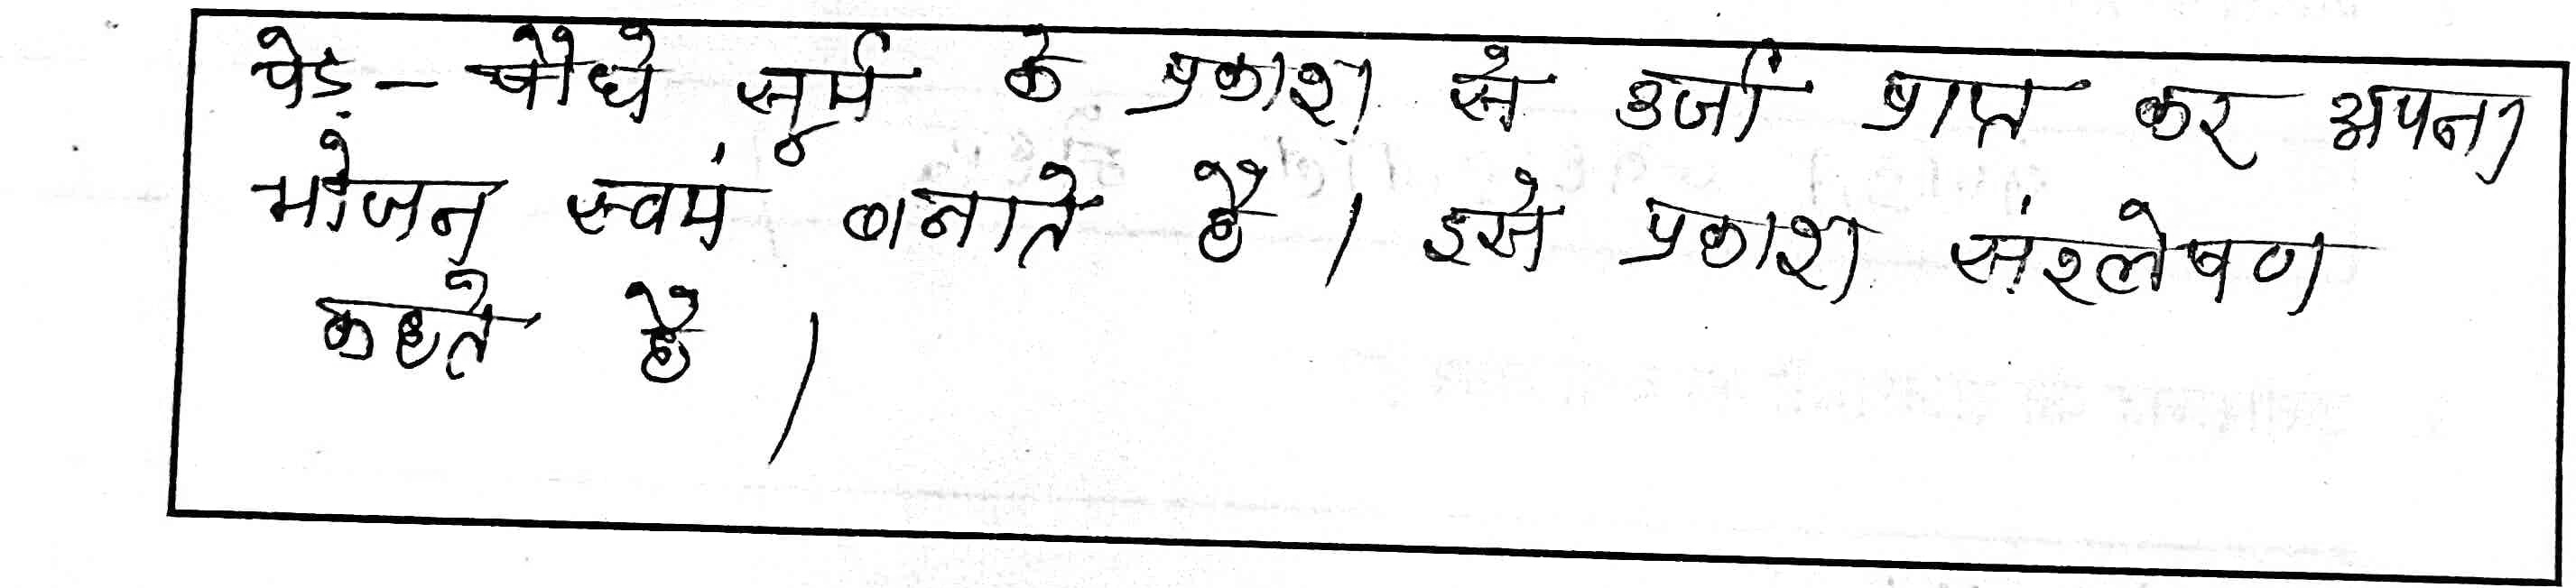 पेड़ - पौधे सूर्य के प्रकाश से उर्जा प्राप्त कर अपना
भोजन स्वयं बनाते है । इसे प्रकाश संश्लेषण
कहते है ।